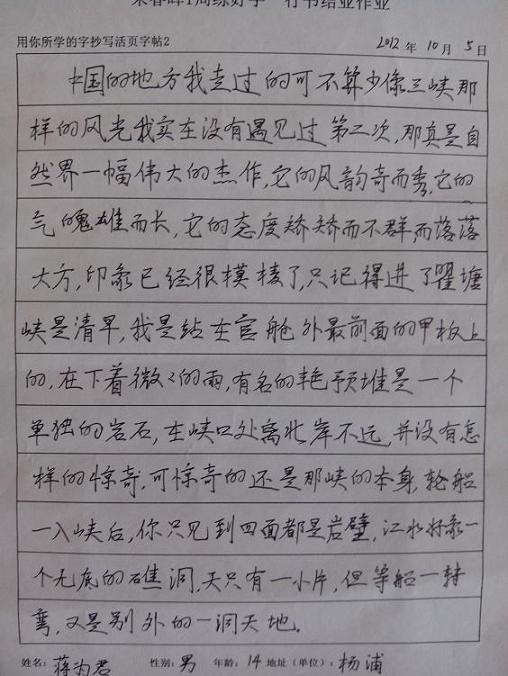 用你所学的字抄写活页字帖2 2012年10月5日
中国的地方我走过的可不算少像三峡那
样的风光我实在没有遇见过第二次,那真是自
然界一幅伟大的杰作,它的风韵奇而秀,它的
气魄雄而长,它的态度矫矫而不群,而落落
大方,印象已经很模棱了,只记得进了瞿塘
峡是清早,我是站在官舱外最前面的甲板上
的,在下着微々的雨,有名的艳预堆是一个
单独的岩石,在峡口处离北岸不远,并没有怎
样的惊奇,可惊奇的还是那峡的本身,轮船
一入峡后,你只见到四面都是岩壁,江水好象一
个无底的礁洞,天只有一小片,但等船一转
弯,又是别外的一洞天地.
姓名:蒋为君 性别:男 年龄:14 地址(单位):杨浦